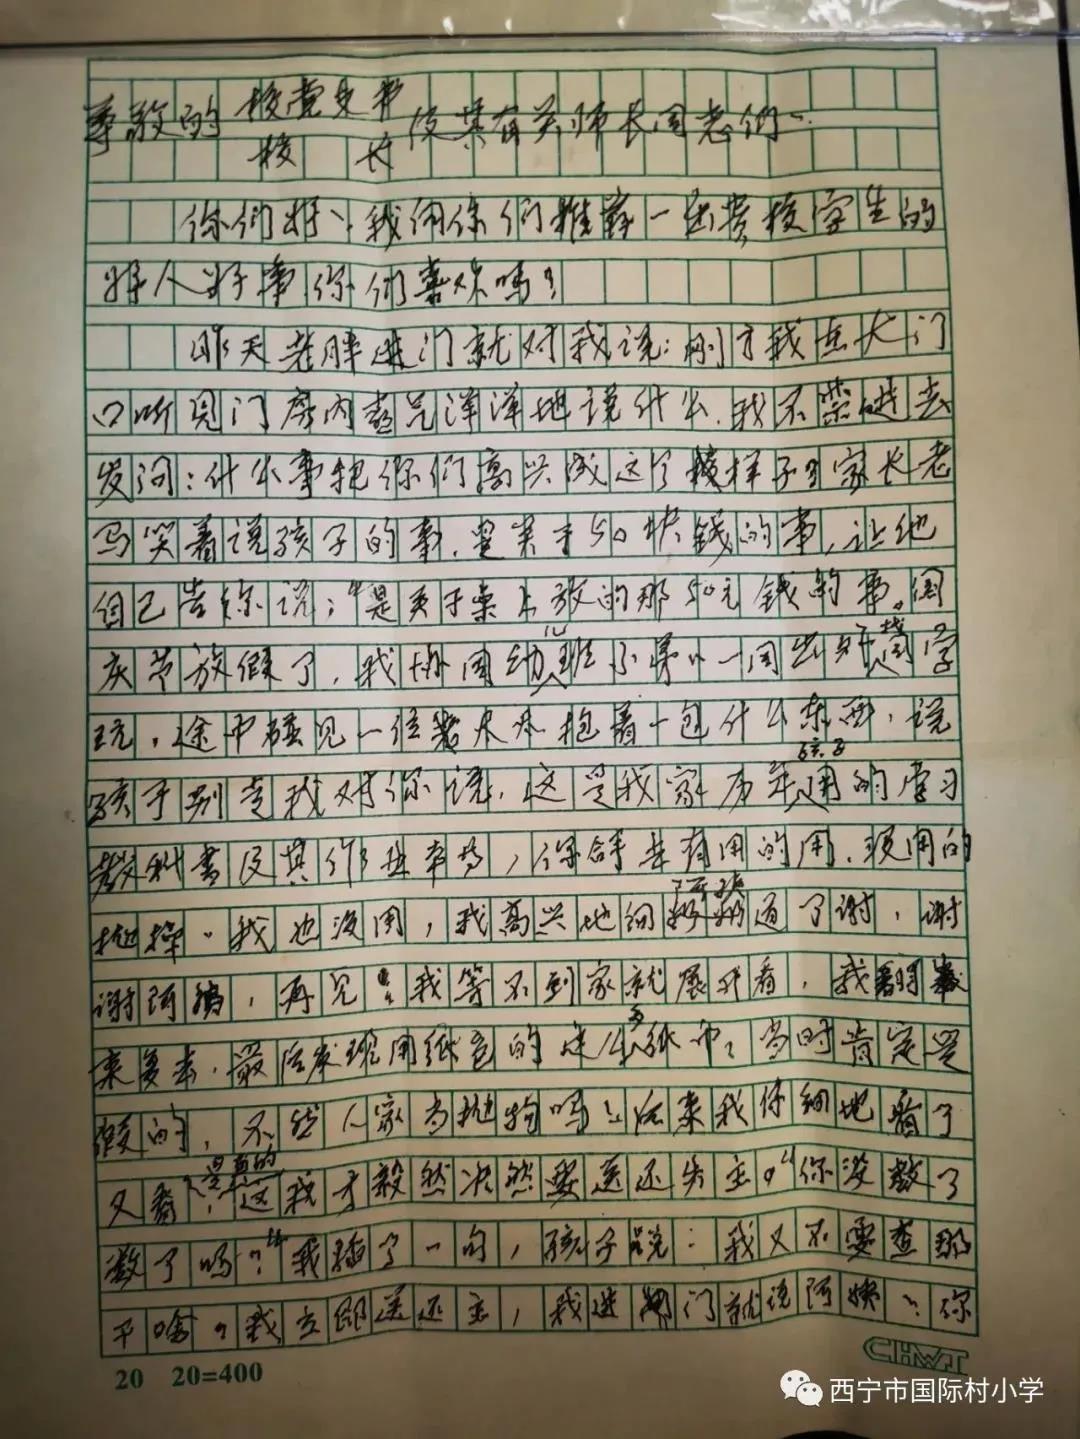 尊敬的校党支书
校长及其有关师长同志们:
你们好、我向你们推荐一出贵校学生的
好人好事你们喜欢吗?
昨天老胖进门就对我说:刚才我在大门
口听见门房内喜气洋洋地说什么,我不禁进去
发问:什么事把你们高兴成这个模样子?家长老
马笑着说孩子的事,是关于50块钱的事,让他
自己告你说:"是关于桌上放的那50元钱的事。国
庆节放假了,我协同幼儿班小弟一同出外找同学
玩,途中碰见一位老太太抱着一包什么东西,说
孩子别走我对你说,这是我家历年孩子用的学习
教科书及其作业本等,你拿去有用的用,没用的
抛掉。我也没用,我高兴地向阿姨道了谢,谢
谢阿姨,再见!我等不到家就展开看,我翻来
复去,最后发现用纸包的这么多纸币、当时肯定是
假的,不然人家当抛物吗?后来我仔细地看了
又看,是真的这我才毅然决然要送还失主。"你没数了
数了吗?"我插了一句,孩子说:我又不要查那
干啥,我立即送还主,我进门就说阿姨:你
20 20=400
CHWT
西宁市国际村小学